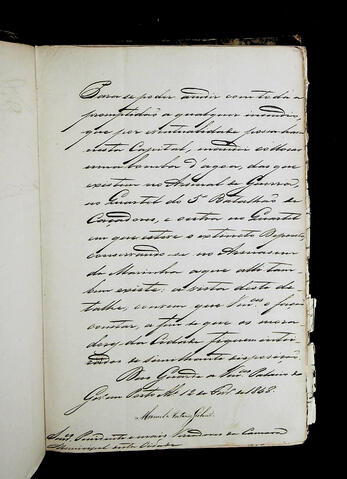 Para se poder acudir com toda a
promptidão a qualquer incendio,
que por eventualidade possa haver
nesta Capital, mandei collocar
uma bomba d'agoa, das que
existem no Arsenal de Guerra,
no Quartel do 5º Batalhão de
Caçadores, e outra no Quartel
em que esteve o extincto Deposito,
conservando-se no Arsenal
de Marinha a que alli tam-
bem existe: a vista deste de-
talhe, convem que Vmces o fação
constar, a fim de que os mora-
dores da Cidade fiquem intei-
rados de semelhante disposição.
Deos Guarde a Vmces Palacio do
Govº em 12 de de 1868.
Manuel
Snrs Presidente e mais Vereadores da Camara
Municipal desta Cidade